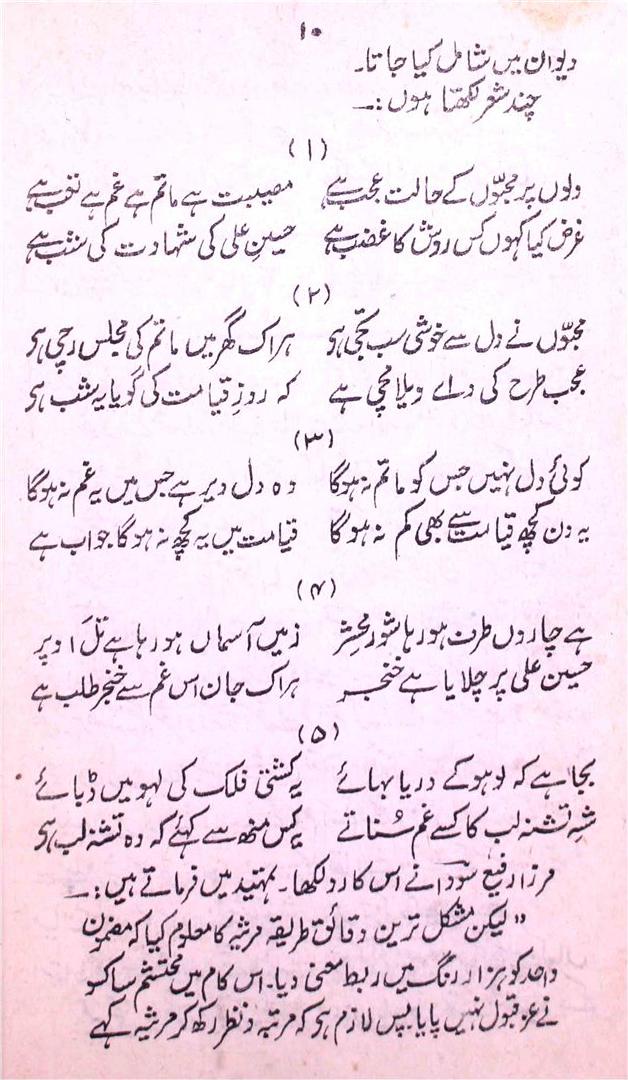 ۱۰
دیوان میں شامل کیا جاتا۔
چند شعر لکھتا ہوں :۔
(۱)
دلوں پر محبّوں کے حالت عجب ہے مصیبت ہے ماتم ہے غم ہے تعب ہے
غرض کیا کہوں کس روش کا غضب ہے حسینِ علی کی شہادت کی شب ہے
(۲)
محبّوں نے دل سے خوشی سب تجی ہی ہر اک گھر میں ماتم کی مجلس رچی ہی
عجب طرح کی واے ویلا مچی ہے کہ روزِ قیامت کی گویا یہ شب ہی
(۳)
کوئی دل نہیں جس کو ماتم نہ ہوگا وہ دل دیر ہے جس میں یہ غم نہ ہوگا
یہ دن کچھ قیامت سے بھی کم نہ ہوگا قیامت میں یہ کچھ نہ ہوگا جو اب ہے
(۴)
ہے چاروں طرف ہو رہا شورِ محشر زمیں آسماں ہو رہا ہے تَل اوپر
حسین علی پر چلایا ہے خنجر ہر اک جان اس غم سے خنجر طلب ہے
(۵)
بجا ہے کہ لوہو کے دریا بہائے یہ کشتی فلک کی لہو میں ڈبائے
شہِ تشنہ لب کا کسے غم سُناتے یہ کس منھ سے کہئے کہ وہ تشنہ لب ہی
مرزا رفیع سودا نے اس کا رد لکھا۔ تمہید میں فرماتے ہیں :۔
”لیکن مشکل ترین دقائق طریقہ مرثیہ کا معلوم کیا کہ مضمون
واحد کو ہزار رنگ میں ربط معنی دیا۔ اس کام میں محتشم سا کسو
نے عز قبول نہیں پایا پس لازم ہی کہ مرتبہ در نظر رکھ کر مرثیہ کہے